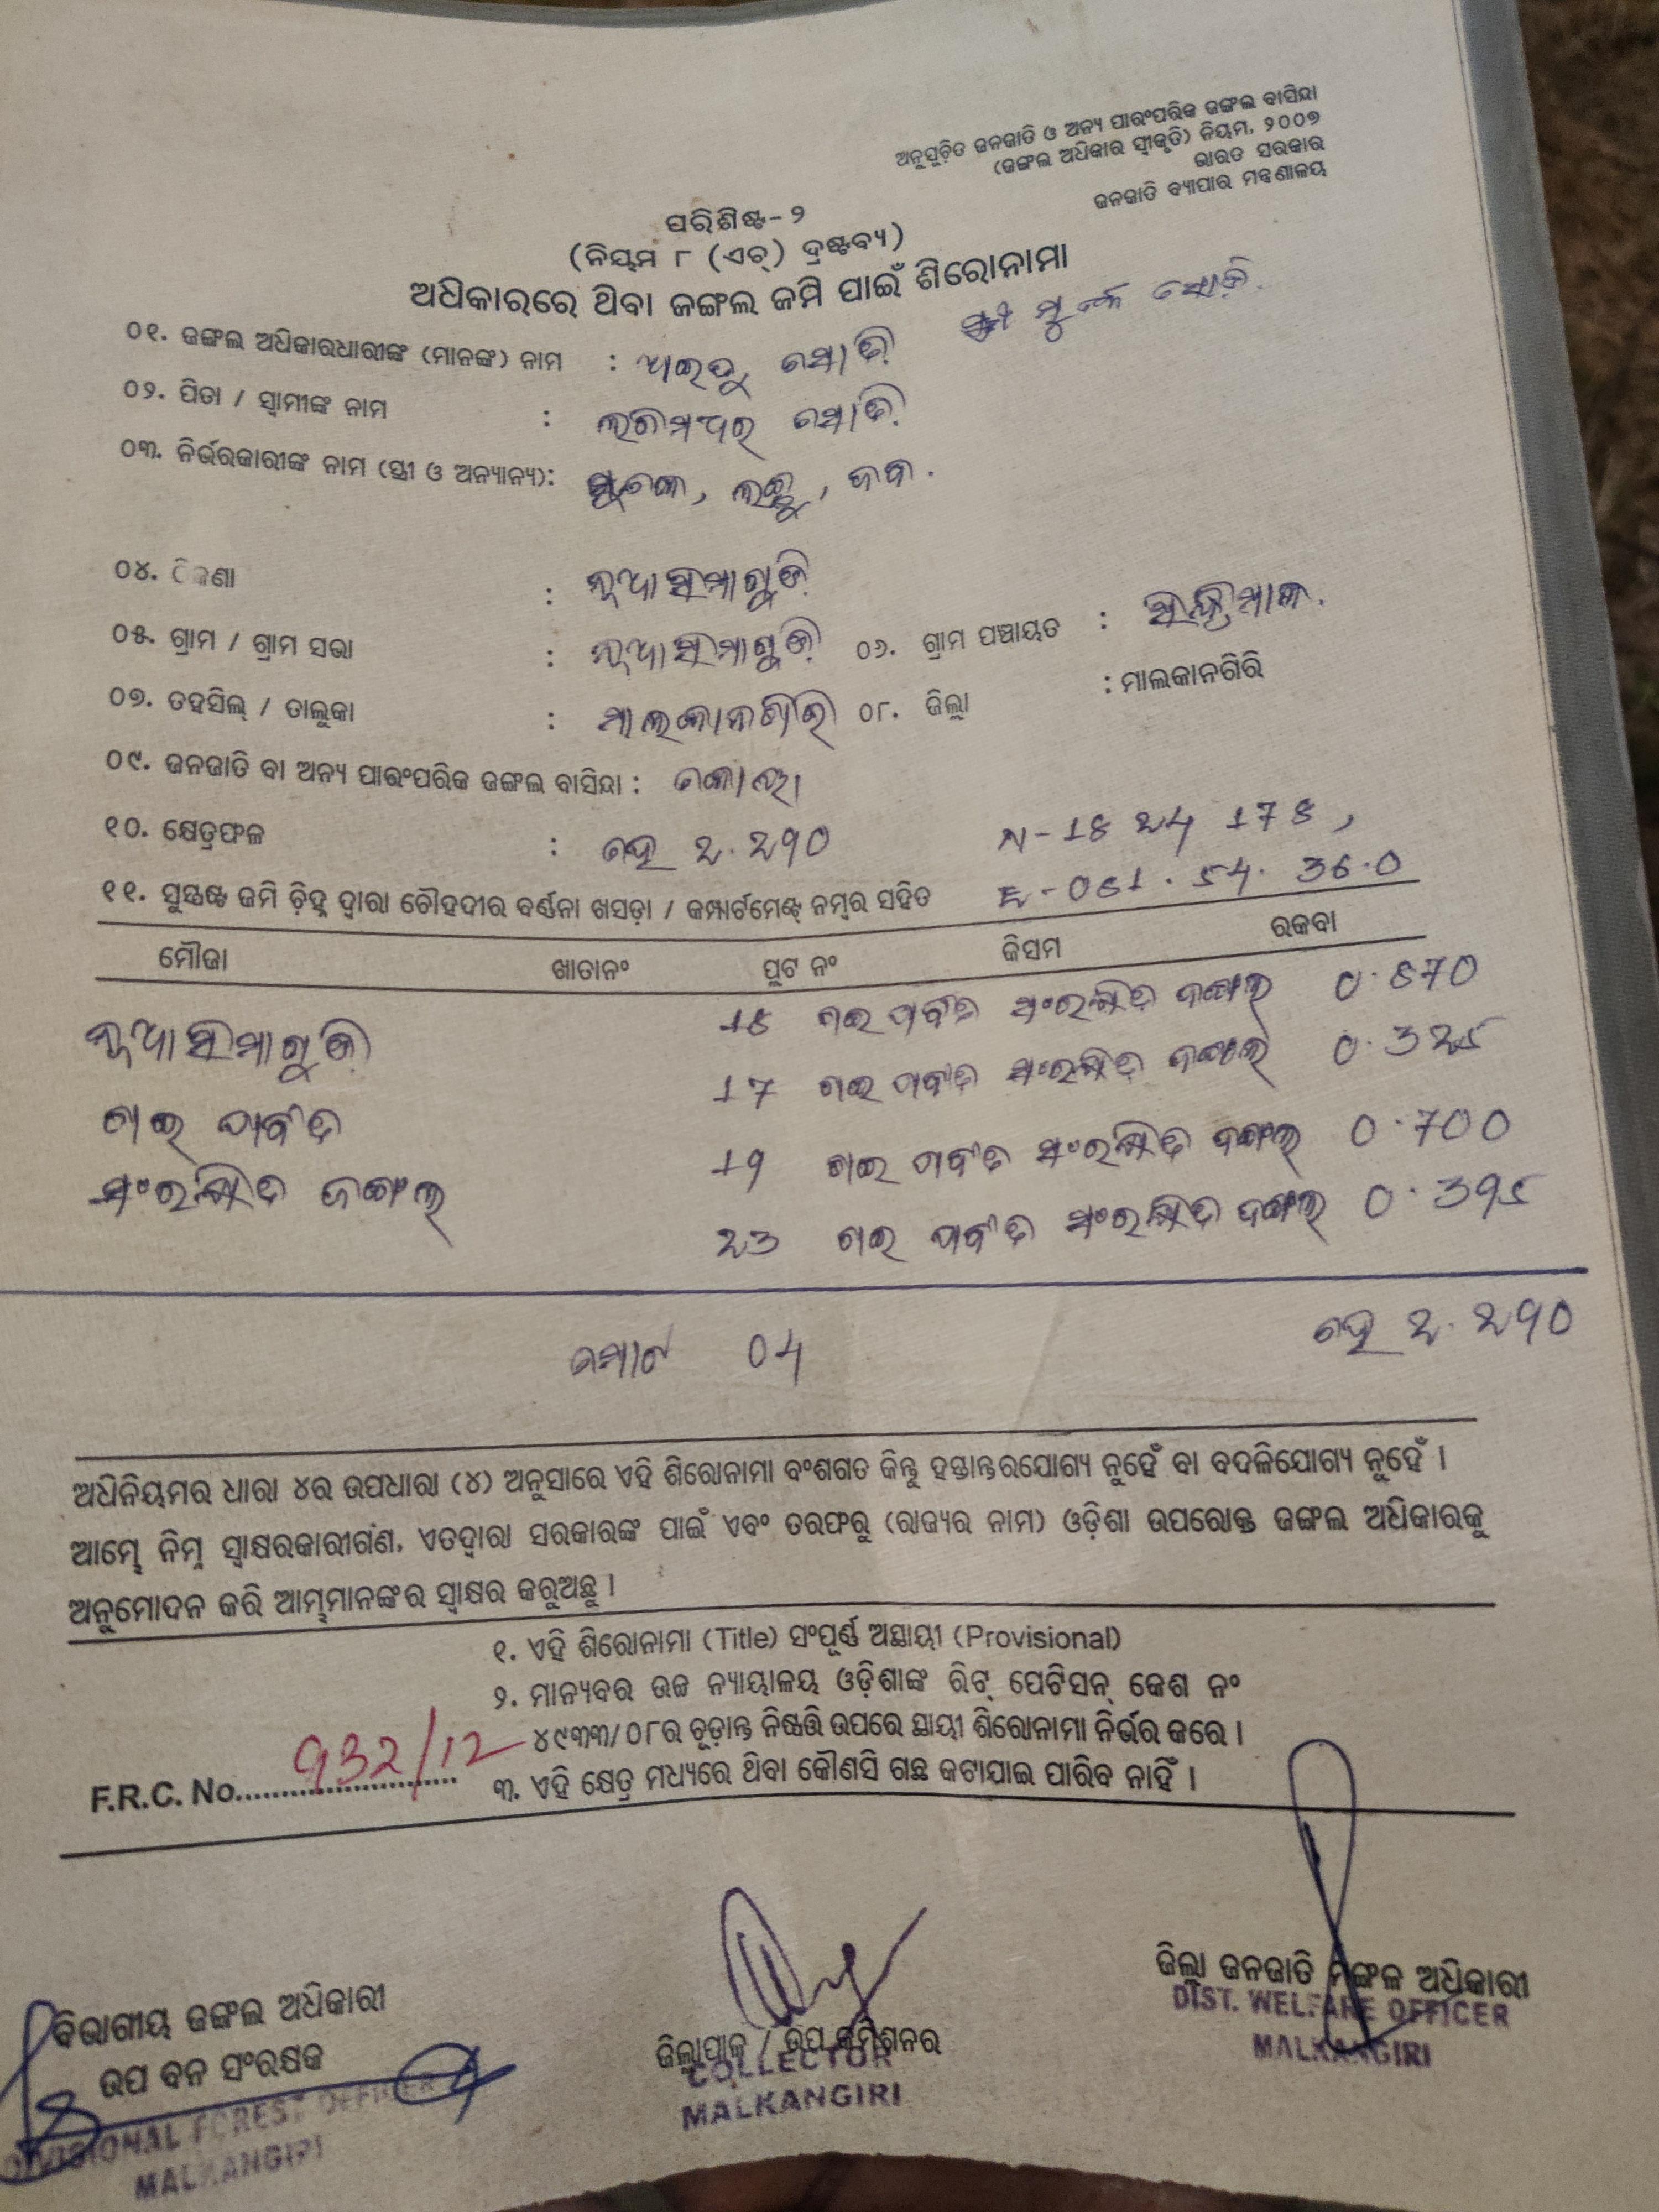 ଅନୁସୂଚିତ ଜନଜାତି ଓ ଅନ୍ୟ ପାରଂପରିକ ଜଙ୍ଗଲ ବାସିନ୍ଦା
(ଜଙ୍ଗଲ ଅଧିକାର ସ୍ୱୀକୃତି) ନିୟମ, ୨୦୦୭
ଭାରତ ସରକାର
ଜନଜାତି ବ୍ୟାପାର ମନ୍ତ୍ରଣାଳୟ
ପରିଶିଷ୍ଟ-୨
(ନିୟମ ୮ (ଏଚ୍) ଦ୍ରଷ୍ଟବ୍ୟ)
ଅଧିକାରରେ ଥିବା ଜଙ୍ଗଲ ଜମି ପାଇଁ ଶିରୋନାମା
୦୧. ଜଙ୍ଗଲ ଅଧିକାରଧାରୀଙ୍କ (ମାନଙ୍କ) ନାମ :
୦୨. ପିତା / ସ୍ୱାମୀଙ୍କ ନାମ :
୦୩. ନିର୍ଭରକାରୀଙ୍କ ନାମ (ସ୍ତ୍ରୀ ଓ ଅନ୍ୟାନ୍ୟ):
୦୪. :
୦୫. ଗ୍ରାମ / ଗ୍ରାମ ସଭା : ୦୬. ଗ୍ରାମ ପଞ୍ଚାୟତ :
୦୭. ତହସିଲ୍ / ତାଲୁକା : ମାଲକାନଗିରି ୦୮. ଜିଲ୍ଲା : ମାଲକାନଗିରି
୦୯. ଜନଜାତି ବା ଅନ୍ୟ ପାରଂପରିକ ଜଙ୍ଗଲ ବାସିନ୍ଦା : କୋୟା
୧୦. କ୍ଷେତ୍ରଫଳ : ହେ 2.290 N-18 24 178,
୧୧. ସୁସ୍ପଷ୍ଟ ଜମି ଚିହ୍ନ ଦ୍ୱାରା ଚୌହଦୀର ବର୍ଣ୍ଣନା ଖସଡ଼ା / କମ୍ପାର୍ଟମେଣ୍ଟ୍ ନମ୍ବର ସହିତ E-081.54.36.0
ମୌଜା ଖାତାନଂ ପ୍ଲଟ ନଂ କିସମ ରକବା
18 ସଂରକ୍ଷିତ ଜଙ୍ଗଲ 0.870
17 ସଂରକ୍ଷିତ ଜଙ୍ଗଲ 0.325
ପର୍ବତ 19 ସଂରକ୍ଷିତ ଜଙ୍ଗଲ 0.700
ସଂରକ୍ଷିତ ଜଙ୍ଗଲ 23 ପର୍ବତ ସଂରକ୍ଷିତ ଜଙ୍ଗଲ 0.395
ମୋଟ 04 ହେ 2.290
ଅଧିନିୟମର ଧାରା ୪ର ଉପଧାରା (୪) ଅନୁସାରେ ଏହି ଶିରୋନାମା ବଂଶଗତ କିନ୍ତୁ ହସ୍ତାନ୍ତରଯୋଗ୍ୟ ନୁହେଁ ବା ବଦଳିଯୋଗ୍ୟ ନୁହେଁ ।
ଆମ୍ଭେ ନିମ୍ନ ସ୍ୱାକ୍ଷରକାରୀଗଣ, ଏତଦ୍ୱାରା ସରକାରଙ୍କ ପାଇଁ ଏବଂ ତରଫରୁ (ରାଜ୍ୟର ନାମ) ଓଡ଼ିଶା ଉପରୋକ୍ତ ଜଙ୍ଗଲ ଅଧିକାରକୁ
ଅନୁମୋଦନ କରି ଆମ୍ଭମାନଙ୍କର ସ୍ୱାକ୍ଷର କରୁଅଛୁ ।
୧. ଏହି ଶିରୋନାମା (Title) ସଂପୂର୍ଣ୍ଣ ଅସ୍ଥାୟୀ (Provisional)
୨. ମାନ୍ୟବର ଉଚ୍ଚ ନ୍ୟାୟାଳୟ ଓଡ଼ିଶାଙ୍କ ରିଟ୍ ପେଟିସନ୍ କେଶ ନଂ
୪୯୩୩/୦୮ର ଚୂଡ଼ାନ୍ତ ନିଷ୍ପତ୍ତି ଉପରେ ସ୍ଥାୟୀ ଶିରୋନାମା ନିର୍ଭର କରେ ।
F.R.C. No. 932/12 ୩. ଏହି କ୍ଷେତ୍ର ମଧ୍ୟରେ ଥିବା କୌଣସି ଗଛ କଟାଯାଇ ପାରିବ ନାହିଁ ।
ବିଭାଗୀୟ ଜଙ୍ଗଲ ଅଧିକାରୀ
ଉପ ବନ ସଂରକ୍ଷକ
DIVISIONAL FOREST OFFICER
MALKANGIRI
ଜିଲ୍ଲାପାଳ / ଉପ କମିଶନର
COLLECTOR
MALKANGIRI
ଜିଲ୍ଲା ଜନଜାତି ମଙ୍ଗଳ ଅଧିକାରୀ
DIST. WELFARE OFFICER
MALKANGIRI